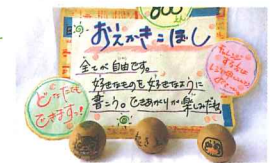 600
おえかきこぼし
全てが自由です。
好きなものを好きなように
書こう。できあがりが楽しみだね
どなたでも
できますっ!